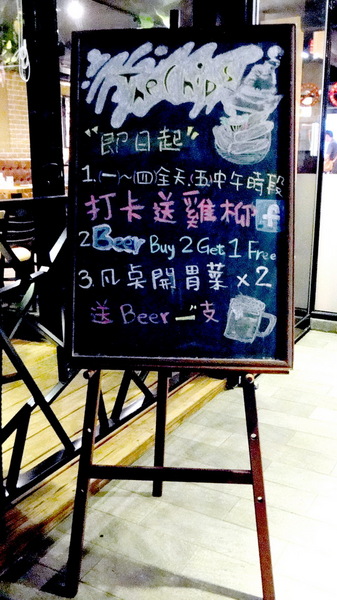 The Chips
"即日起"
1.(一~四)全天,(五)中午時段
打卡送雞柳 f
2 Beer Buy 2 Get 1 Free
3.凡桌開胃菜x2
送Beer一支